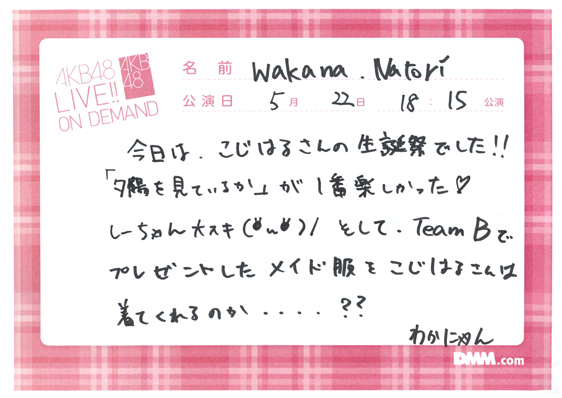 AKB48
LIVE!!
ON DEMAND
AKB
48
名前 Wakana.Natori
公演日 5月 22日 18:15 公演
今日は、こじはるさんの生誕祭でした!!
「夕陽を見ているか」が1番楽しかった♡
しーちゃん大スキ(・ω・)/ そして、Team Bで
プレゼントしたメイド服をこじはるさんは
着てくれるのか ....??
わかにゃん
DMM.com